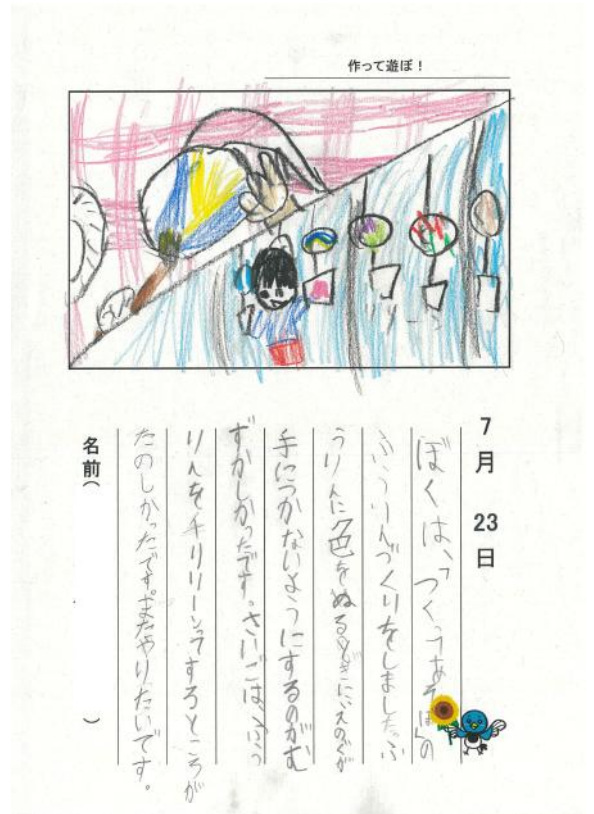 作って遊ぼ！
7月 23日
ぼくは、「つくってあそぼ」の
ふうりんづくりをしました。ふ
うりんに色をぬるときに、えのぐが
手につかないようにするのがむ
ずかしかったです。さいごは、ふう
りんをチリリーンってするところが
たのしかったです。まだやりたいです。
名前（ ）